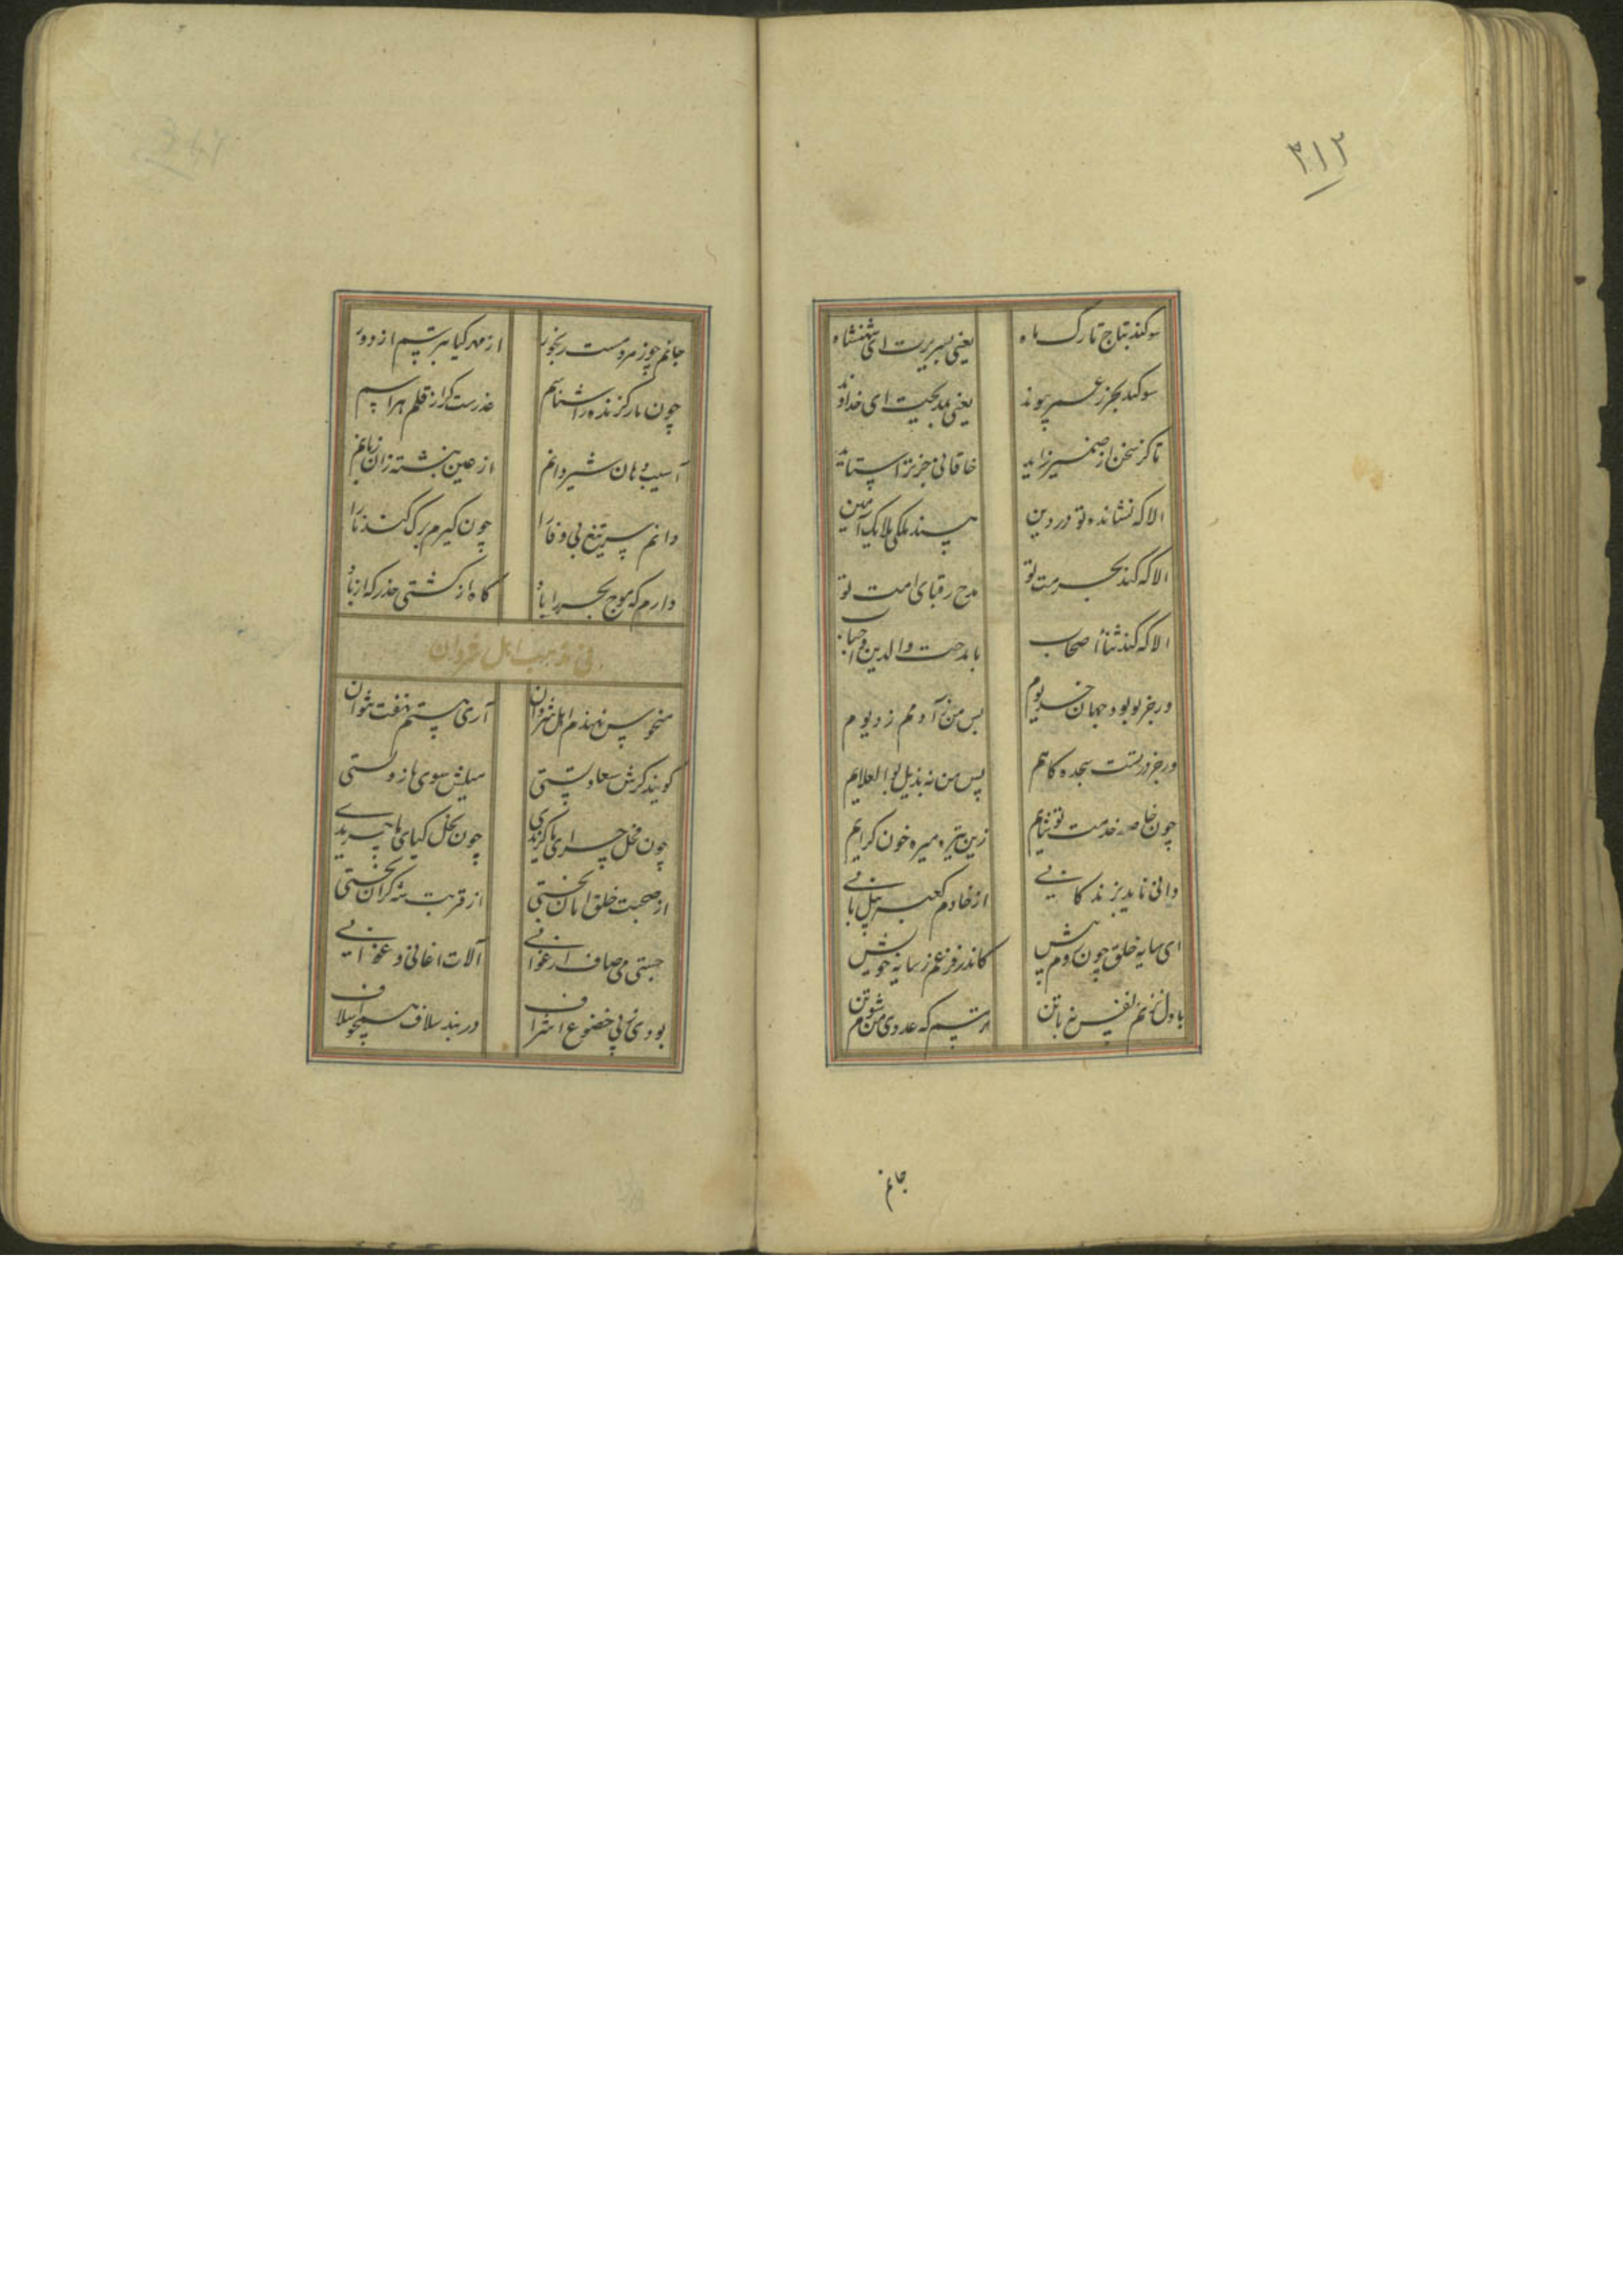 ۳۱۲
سوکند بتاج تارک ماه
یعنی بسریرت ای شهنشاه
سوکند بجرز عمر پیوند
یعنی بمدیحت ای خداوند
تا کز سخن از ضمیر زاید
خاقانی جز ترا ستاید
الا که نشانده تو در دین
پسند ملکی ملایک آیین
الا که کند بحرمت تو
مدح رقبای امت تو
الا که کند ثنا اصحاب
با مدحت والدین و احباب
ور جز تو بود جهان خدیوم
پس من نه آدمم ز دیوم
ور جز در تست سجده کاهم
پس من نه بذیل بو العلایم
چون خاصه خدمت تو شایم
زین تیره میره خون کرایم
دانی ناید ز زندکانی
از خادم کعبه پیل بانی
ای سایه خلق چون دم پیش
کاندر فزعم ز سایه خویش
با دل نزنم نفس نه با تن
ترسم که عدوی من شوم من
جانم
جانم چو ز مردمست رنجور
از مهر کیا بترسم از دور
چون مار کزنده را شناسم
عذرست کر از قلم هراسم
آسیب دهان شیر دانم
از عین نبشته زان زمانم
دانم سر تیغ بی وفا را
چون کیرم برک کندنا را
دارم که موج بحر را یاد
کاه از کشتی حذر که از باد
فی مذهب اهل شروان
منحوس نهندم اهل شروان
آری ستم نهفت نتوان
کویند کرش سعادتستی
میلش سوی ما ز دلستی
چون نحل چرای ما کزیدی
چون نخل کیای ما چریدی
از صحبت خلق امان نجستی
از قربت شه کران نجستی
جستی می صاف ارغوانی
آلات اغانی و غوانی
بودی نه پی خضوع اشراف
در بند سلاف همچو اسلاف